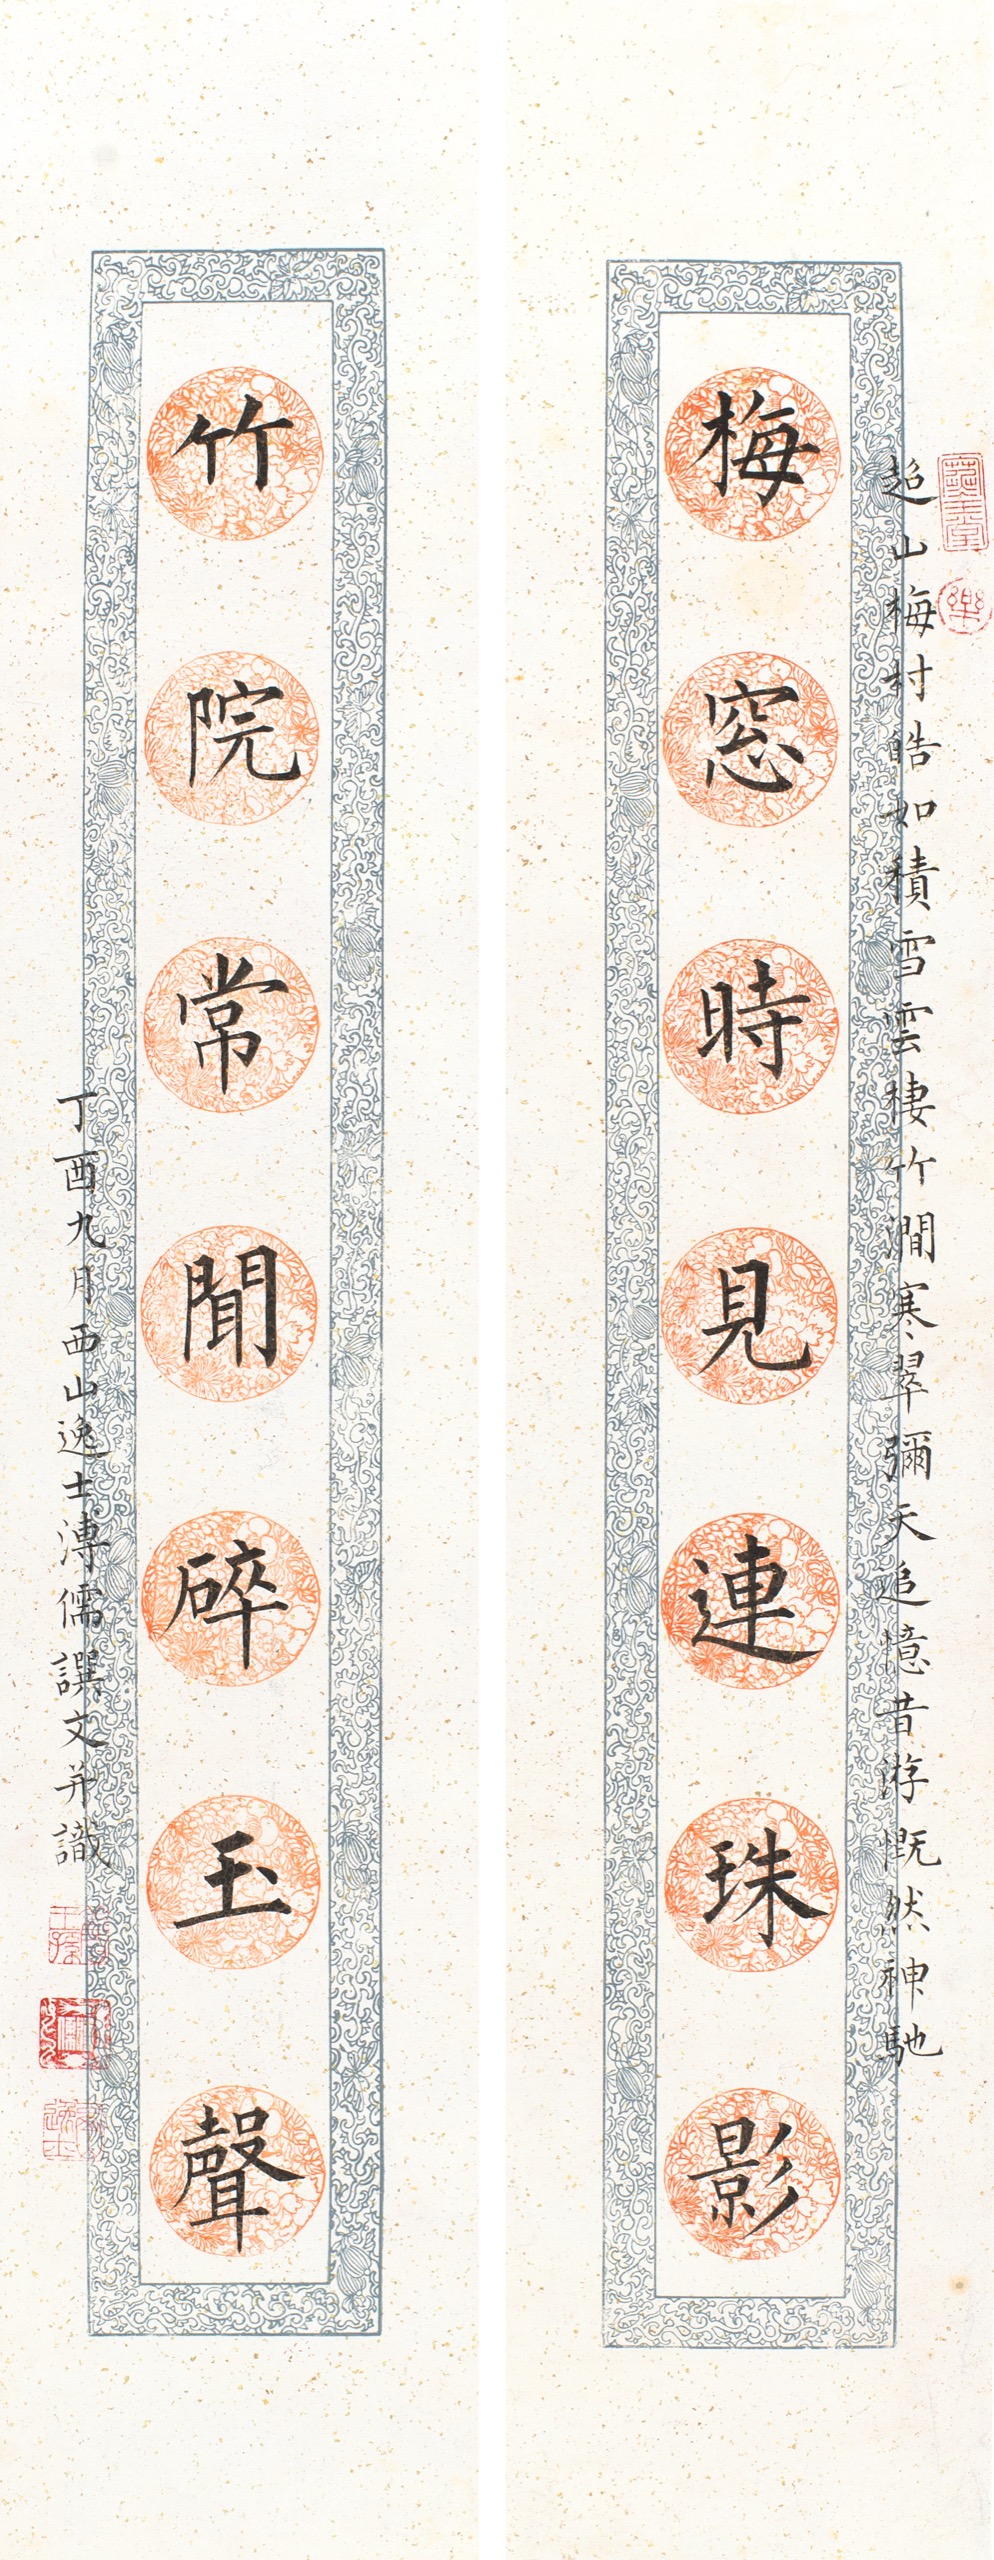 超山梅村皓如積雪雲棲竹澗寒翠彌天追憶昔游慨然神馳
梅窓時見連珠影
竹院常聞碎玉聲
丁酉九月西山逸士溥儒譔文并識